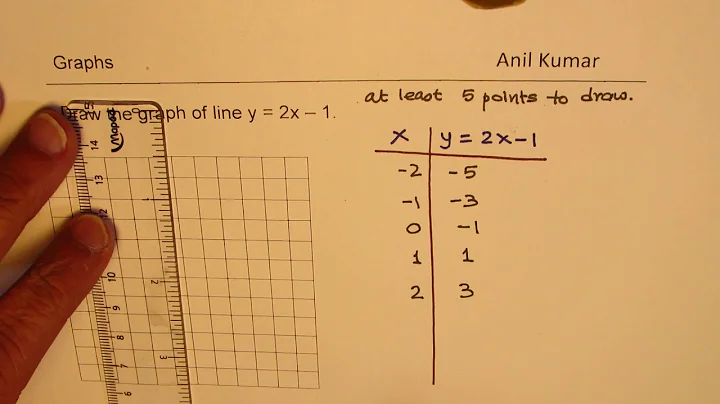 Graphs
Anil Kumar
Draw the graph of line y = 2x – 1.
at least 5 points to draw.
x y = 2x-1
-2 -5
-1 -3
0 -1
1 1
2 3
Maped
0
1
2
3
15
14
13
12
10
9
8
7
6